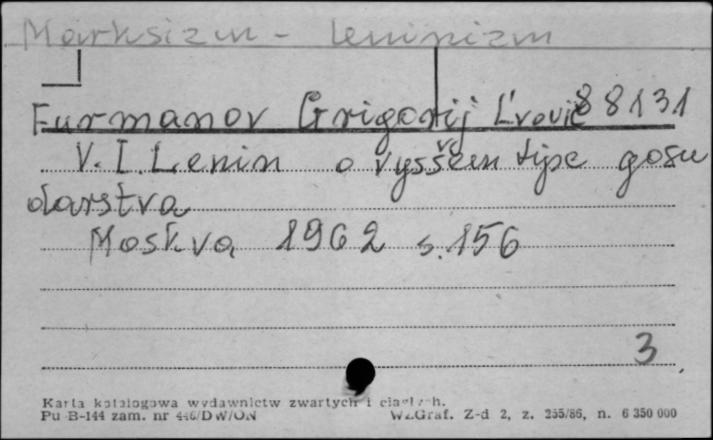 Marksizm - leninizm
Furmanov Grigorij L'vovič 88131
V. I. Lenin o vysšem tipe gosu
darstva
Moskva 1962 s. 156
3
Karta katalogowa wydawnictw zwartych i ciągłych.
Pu B-144 zam. nr 446/DW/ON WZGraf. Z-d 2, z. 255/86, n. 6 350 000